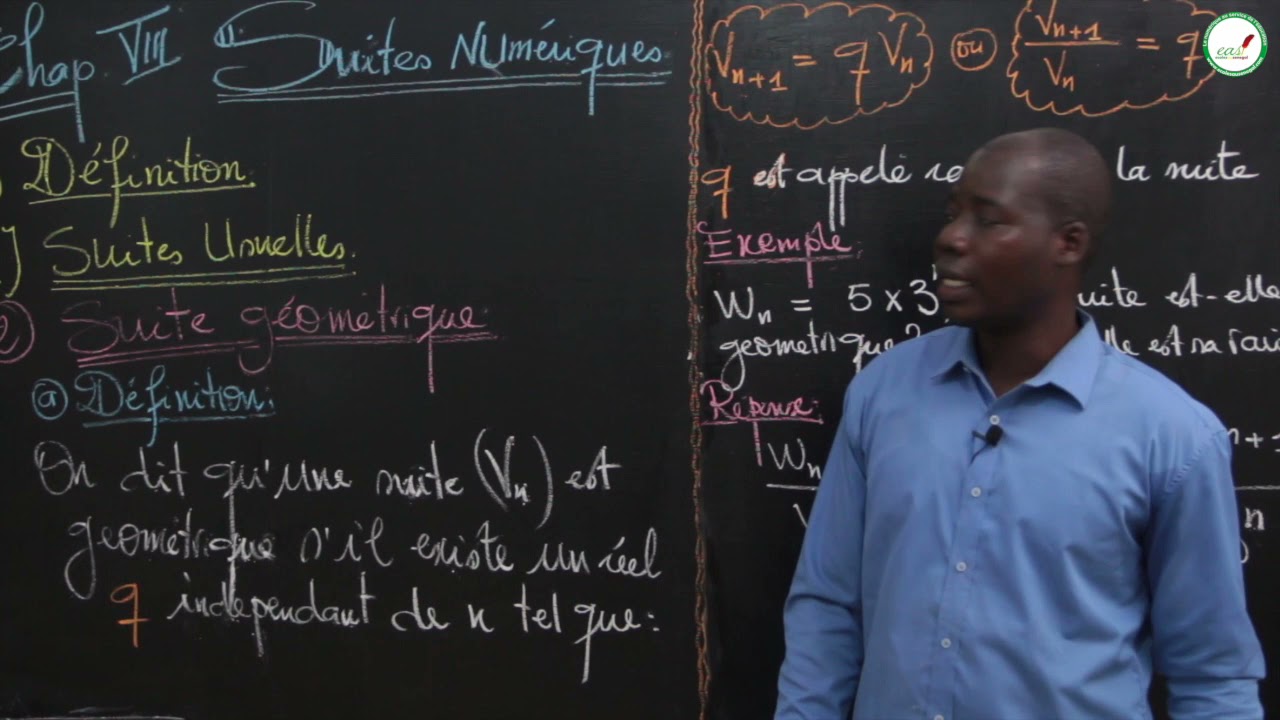 Chap VIII Suites Numériques
) Définition
) Suites Usuelles.
2) Suite géométrique
a) Définition:
On dit qu'une suite (Vn) est
geométrique s'il existe un réel
q independant de n tel que:
Vn+1 = q Vn ou Vn+1/Vn = q
q est appelé la suite
Exemple
Wn = 5 x 3 est-elle
geometrique est sa
Réponse:
Wn n+1
n
eas!